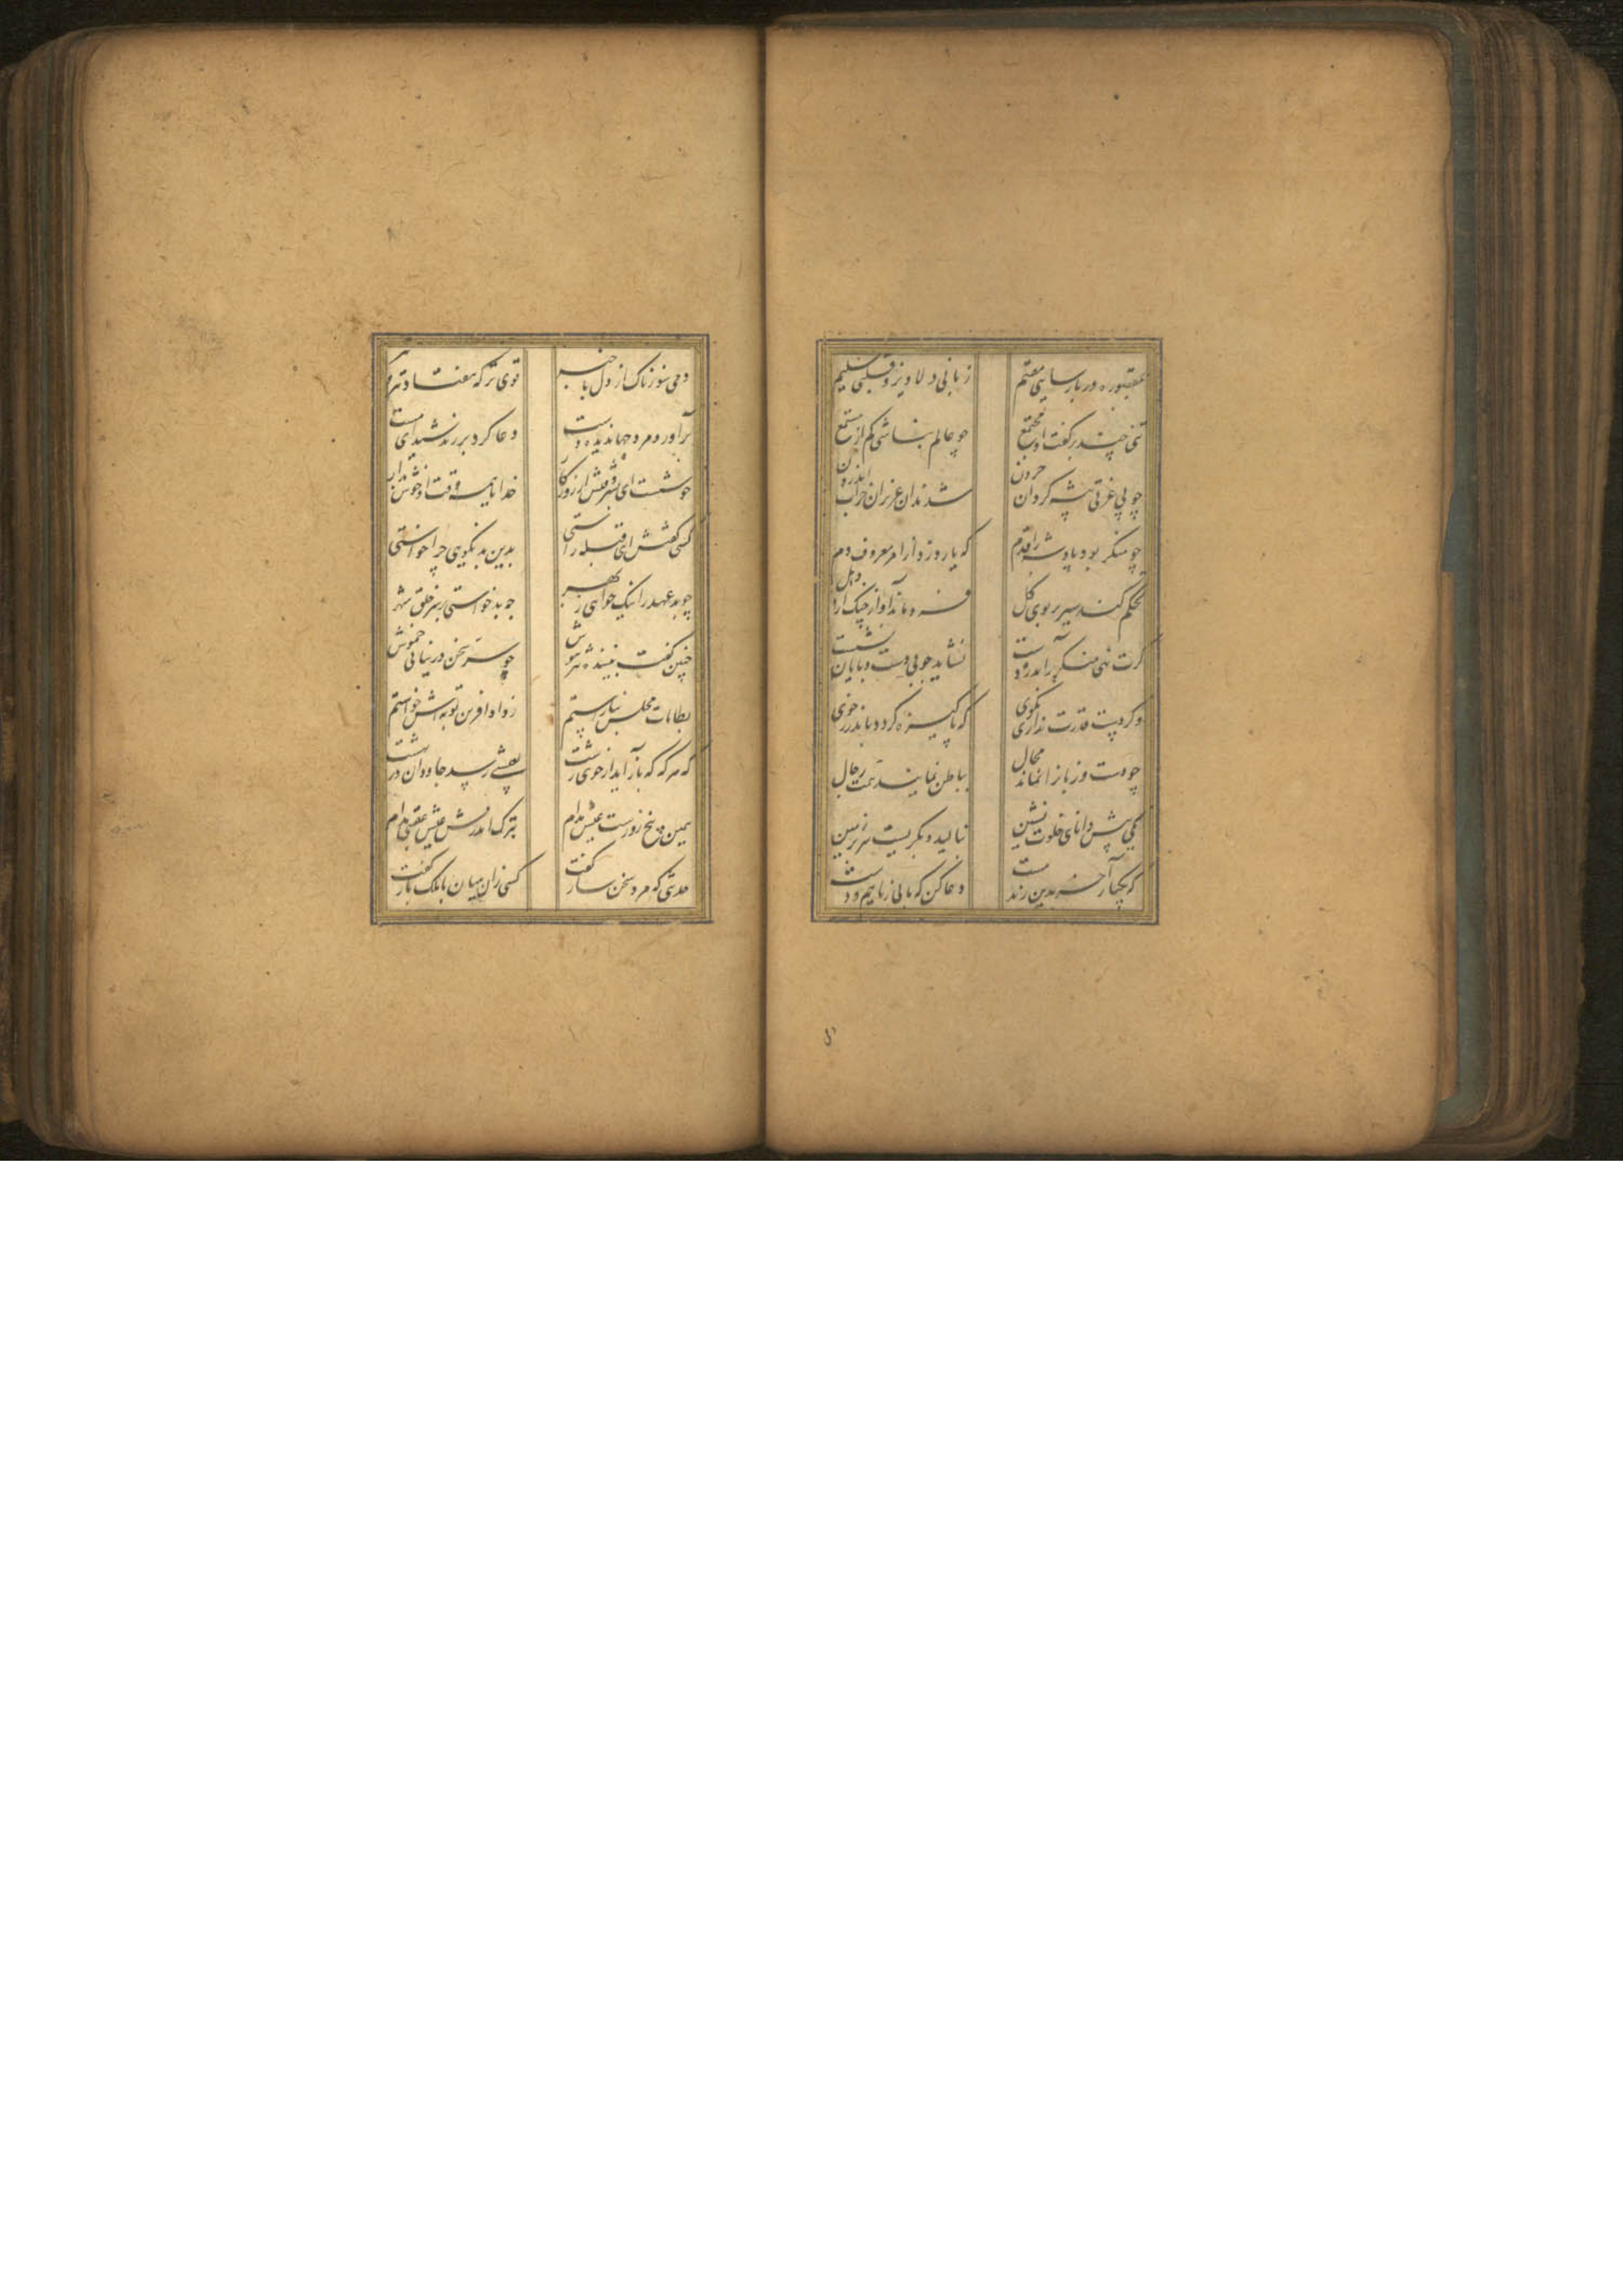 بمقصوره در پارسایی مقیم زبانی دلاویز و قلبی سلیم
تنی چند بر گفت او مجتمع چو عالم نباشی کم از مستمع
چو بی عزتی پیشه کرد آن حرون شدند آن عزیزان خراب اندرون
چو منکر بود پادشه را قدم که یارد زد از امر معروف دم
تحکم کند سیر بر بوی گل فرو ماند آواز چنگ از دهل
گرت نهی منکر برآید ز دست نشاید چو بی دست و پایان نشست
وگر دست قدرت نداری بگوی که پاکیزه گردد باندرز خوی
چو دست و زبانرا نماند مجال بباطن نمایند همت رجال
یکی پیش دانای خلوت نشین بنالید و بگریست سر بر زمین
که یکبار آخر بدین رند مست دعا کن که ما بی زبانیم و دست
دمی سوزناک از دل با خبر قوی ترکه هفتاد تیغ و تبر
برآورد مرد جهاندیده دست دعا کرد بر رند شیدای مست
خوشست ای پسر وقتش از روزگار خدایا همه وقت او خوش بدار
کسی گفتش ای قبله راستی بدین بد نکویی چرا خواستی
چو بد عهد را نیک خواهی ز بهر چو بد خواستی بر سر خلق شهر
چنین گفت بیننده تیز هوش چو سر سخن در نیابی خموش
بطامات مجلس نیاراستم ز داد آفرین توبه اش خواستم
که هرگه که باز آید از خوی زشت بعیشی رسد جاودان در بهشت
همین پنج روزست عیش مدام بترک اندرش عیش عقبی مدام
حدیثی که مرد سخن ساز گفت کسی زان میان با ملک باز گفت